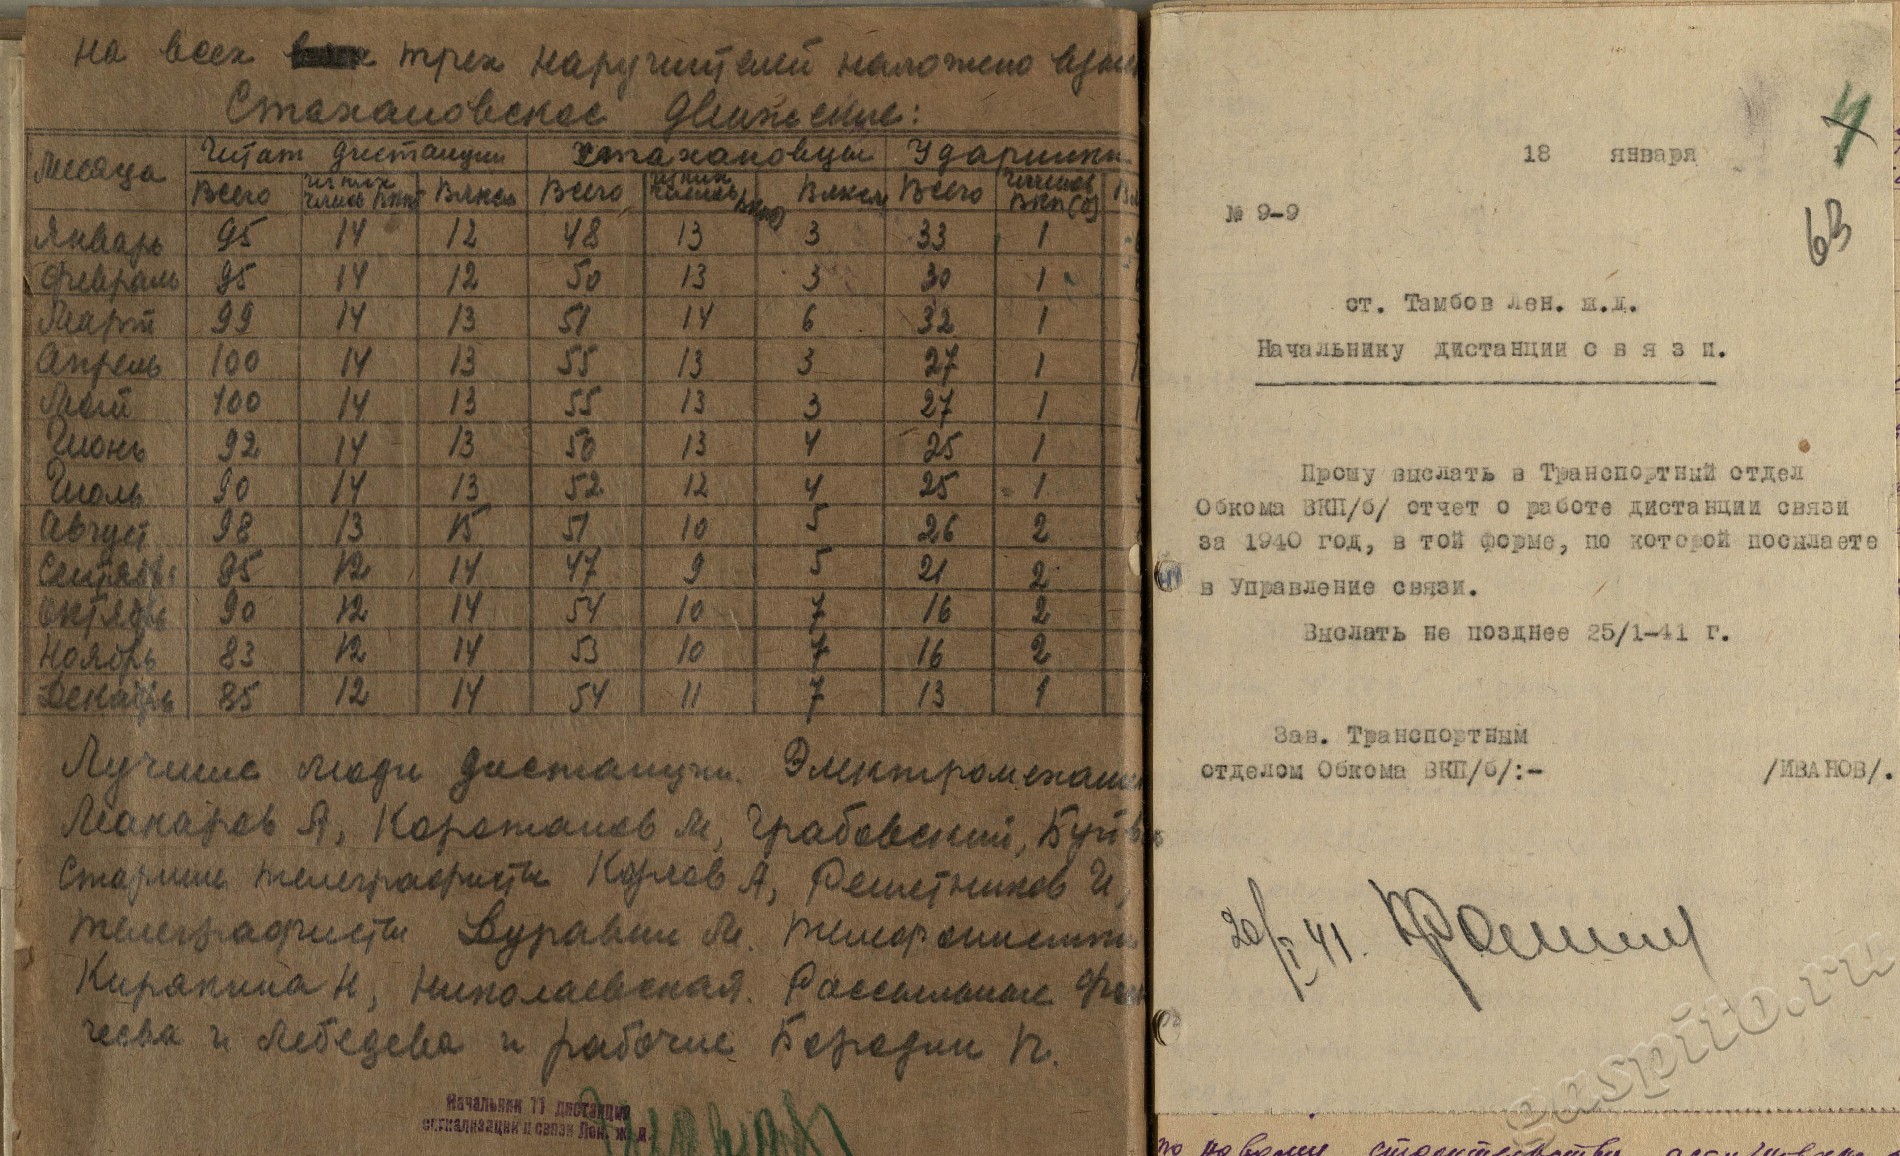 на всех трех наручителей наложено взыс
Стахановское движение:
Месяца Штат дистанции Стахановцы Ударники
Всего из них членов ВКПб Влксм Всего из них членов ВКПб Влксм Всего Членов ВКП(б) Вл
Январь 95 14 12 48 13 3 33 1
Февраль 95 14 12 50 13 3 30 1
Март 99 14 13 51 14 6 32 1
Апрель 100 14 13 55 13 3 27 1
Май 100 14 13 55 13 3 27 1
Июнь 92 14 13 50 13 4 25 1
Июль 90 14 13 52 12 4 25 1
Август 98 13 15 51 10 5 26 2
Сентябрь 85 12 14 47 9 5 21 2
Октябрь 90 12 14 54 10 7 16 2
Ноябрь 83 12 14 53 10 7 16 2
Декабрь 85 12 14 54 11 7 13 1
Лучшие люди дистанции. Электромехани
Макаров А, Коротаков М, Грабовский,
Старшие телеграфисты Козлов А, Решетников И,
телеграфисты Журавин М. телефонистки
Киракина Н, Николаевская. Рассыльные
чева и Лебедева и рабочие Бородин П.
Начальник 11 дистанции
сигнализации и связи Лен. ж.д.
18 января
63
№ 9-9
ст. Тамбов Лен. ж.д.
Начальнику дистанции с в я з и.
Прошу выслать в Транспортный отдел
Обкома ВКП/б/ отчет о работе дистанции связи
за 1940 год, в той форме, по которой посылаете
в Управление связи.
Выслать не позднее 25/1-41 г.
Зав. Транспортным
отделом Обкома ВКП/б/:- /ИВАНОВ/.
20/I 41.
gaspito.ru